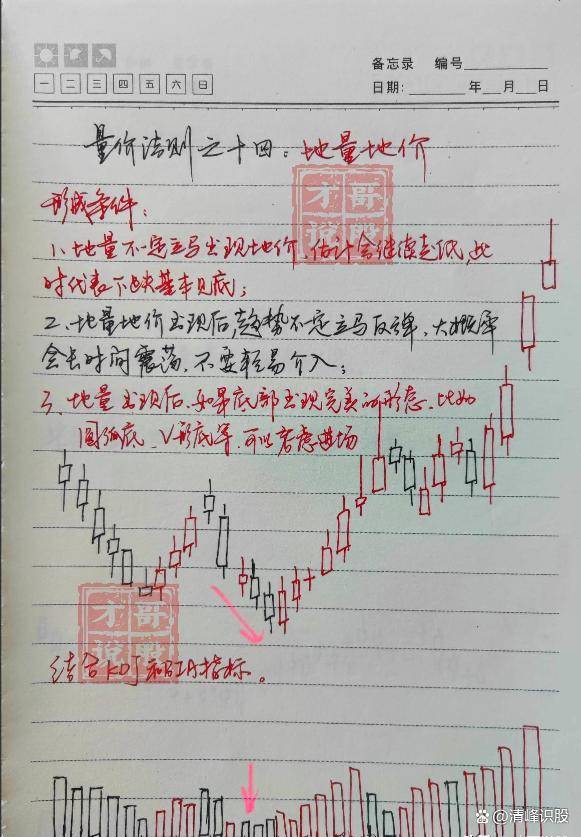 备忘录 编号
一 二 三 四 五 六 日
日期: 年 月 日
量价法则之十四:地量地价
才哥说股
形成条件:
1、地量不一定立马出现地价,估计会继续走低,此
时代表下跌基本见底;
2、地量地价出现后,趋势不一定立马反弹,大概率
会长时间震荡,不要轻易介入;
3、地量出现后,如果底部出现完美的形态,比如
圆弧底、V形底等,可以考虑进场
才哥说股
结合KDJ和 指标。
清峰识股